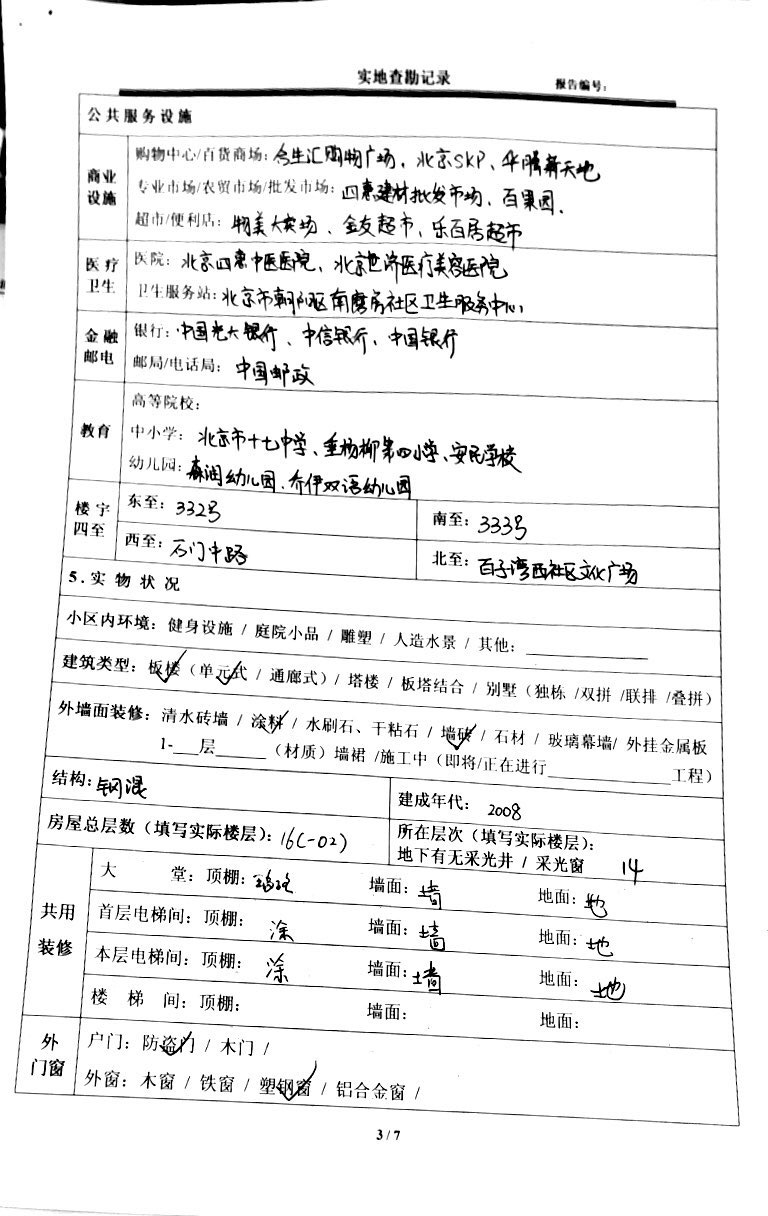 实地查勘记录
报告编号:
公共服务设施
商业设施
购物中心/百货商场: 合生汇购物广场、北京SKP、华腾新天地
专业市场/农贸市场/批发市场: 四惠建材批发市场、百果园.
超市/便利店: 物美大卖场、金友超市、乐百居超市
医疗卫生
医院: 北京四惠中医医院、北京世济医疗美容医院
卫生服务站: 北京市朝阳区南磨房社区卫生服务中心
金融邮电
银行: 中国光大银行、中信银行、中国银行
邮局/电话局: 中国邮政
教育
高等院校:
中小学: 北京市十七中学、垂杨柳第四小学、安民学校
幼儿园: 森润幼儿园、乔伊双语幼儿园
楼宇四至
东至: 332号 南至: 333号
西至: 石门中路 北至: 百子湾西社区文化广场
5.实物状况
小区内环境: 健身设施 / 庭院小品 / 雕塑 / 人造水景 / 其他:
建筑类型: 板楼(单元式 / 通廊式)/ 塔楼 / 板塔结合 / 别墅(独栋 /双拼 /联排 /叠拼)
外墙面装修: 清水砖墙 / 涂料 / 水刷石、干粘石 / 墙砖 / 石材 / 玻璃幕墙/ 外挂金属板
1-___层______(材质)墙裙 /施工中(即将/正在进行____________工程)
结构: 钢混 建成年代: 2008
房屋总层数(填写实际楼层): 16(-02) 所在层次(填写实际楼层):
地下有无采光井 / 采光窗 14
共用装修
大堂: 顶棚: 墙面: 墙 地面: 地
首层电梯间: 顶棚: 涂 墙面: 墙 地面: 地
本层电梯间: 顶棚: 涂 墙面: 墙 地面: 地
楼梯间: 顶棚: 墙面: 地面:
外门窗
户门: 防盗门 / 木门 /
外窗: 木窗 / 铁窗 / 塑钢窗 / 铝合金窗 /
3 / 7